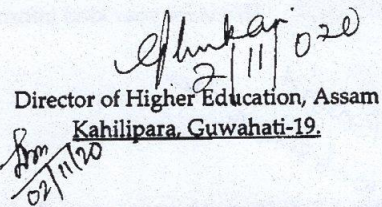 2/11/020
Director of Higher Education, Assam
Kahilipara, Guwahati-19.
02/11/20